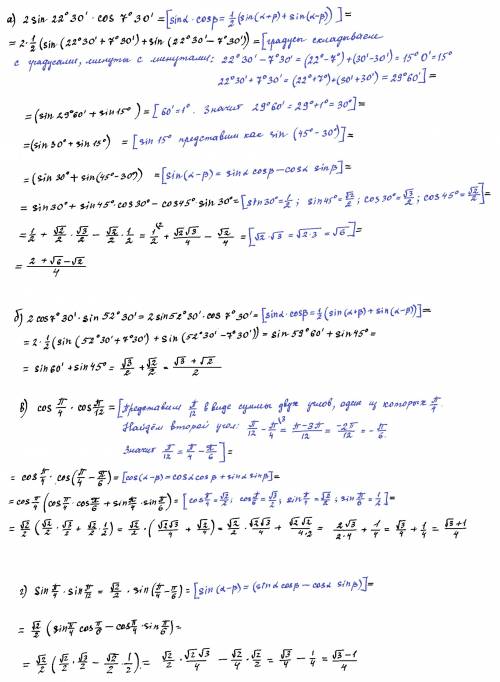 а) 2 sin 22°30' · cos 7°30' = [sinα · cosβ = 1/2 (sin(α+β) + sin(α-β))] =
= 2 · 1/2 (sin (22°30' + 7°30') + sin (22°30' - 7°30')) = [градусы складываем
с градусами, минуты с минутами: 22°30' - 7°30' = (22°-7°) + (30'-30') = 15°0' = 15°
22°30' + 7°30' = (22°+7°) + (30'+30') = 29°60'] =
= (sin 29°60' + sin 15°) = [60' = 1°. Значит 29°60' = 29°+1° = 30°] =
= (sin 30° + sin 15°) = [sin 15° представим как sin (45°-30°)] =
= (sin 30° + sin(45°-30°)) = [sin(α-β) = sinα cosβ - cosα sinβ] =
= sin 30° + sin 45° · cos 30° - cos 45° · sin 30° = [sin 30° = 1/2 ; sin 45° = √2/2 ; cos 30° = √3/2 ; cos 45° = √2/2] =
= 1/2 + √2/2 · √3/2 - √2/2 · 1/2 = 1/2 + √2√3/4 - √2/4 = [√2 · √3 = √2·3 = √6] =
= (2 + √6 - √2)/4
б) 2 cos 7°30' · sin 52°30' = 2 sin 52°30' · cos 7°30' = [sinα · cosβ = 1/2 (sin(α+β) + sin(α-β))] =
= 2 · 1/2 (sin (52°30' + 7°30') + sin (52°30' - 7°30')) = sin 59°60' + sin 45° =
= sin 60° + sin 45° = √3/2 + √2/2 = (√3 + √2)/2
в) cos π/4 · cos π/12 = [Представим π/12 в виде суммы двух углов, один из которых π/4.
Найдём второй угол: π/12 - π/4 = (π-3π)/12 = -2π/12 = -π/6.
Значит π/12 = π/4 - π/6] =
= cos π/4 · cos (π/4 - π/6) = [cos(α-β) = cosα cosβ + sinα sinβ] =
= cos π/4 (cos π/4 · cos π/6 + sin π/4 · sin π/6) = [cos π/4 = √2/2 ; cos π/6 = √3/2 ; sin π/4 = √2/2 ; sin π/6 = 1/2] =
= √2/2 (√2/2 · √3/2 + √2/2 · 1/2) = √2/2 · (√2√3/4 + √2/4) = √2/2 · √2√3/4 + √2√2/4·2 = 2√3/2·4 + 1/4 = √3/4 + 1/4 = (√3+1)/4
г) sin π/4 · sin π/12 = √2/2 · sin (π/4 - π/6) = [sin (α-β) = (sinα cosβ - cosα sinβ)] =
= √2/2 (sin π/4 cos π/6 - cos π/4 · sin π/6) =
= √2/2 (√2/2 · √3/2 - √2/2 · 1/2) = √2/2 · √2√3/4 - √2/4 · √2/2 = √3/4 - 1/4 = (√3-1)/4